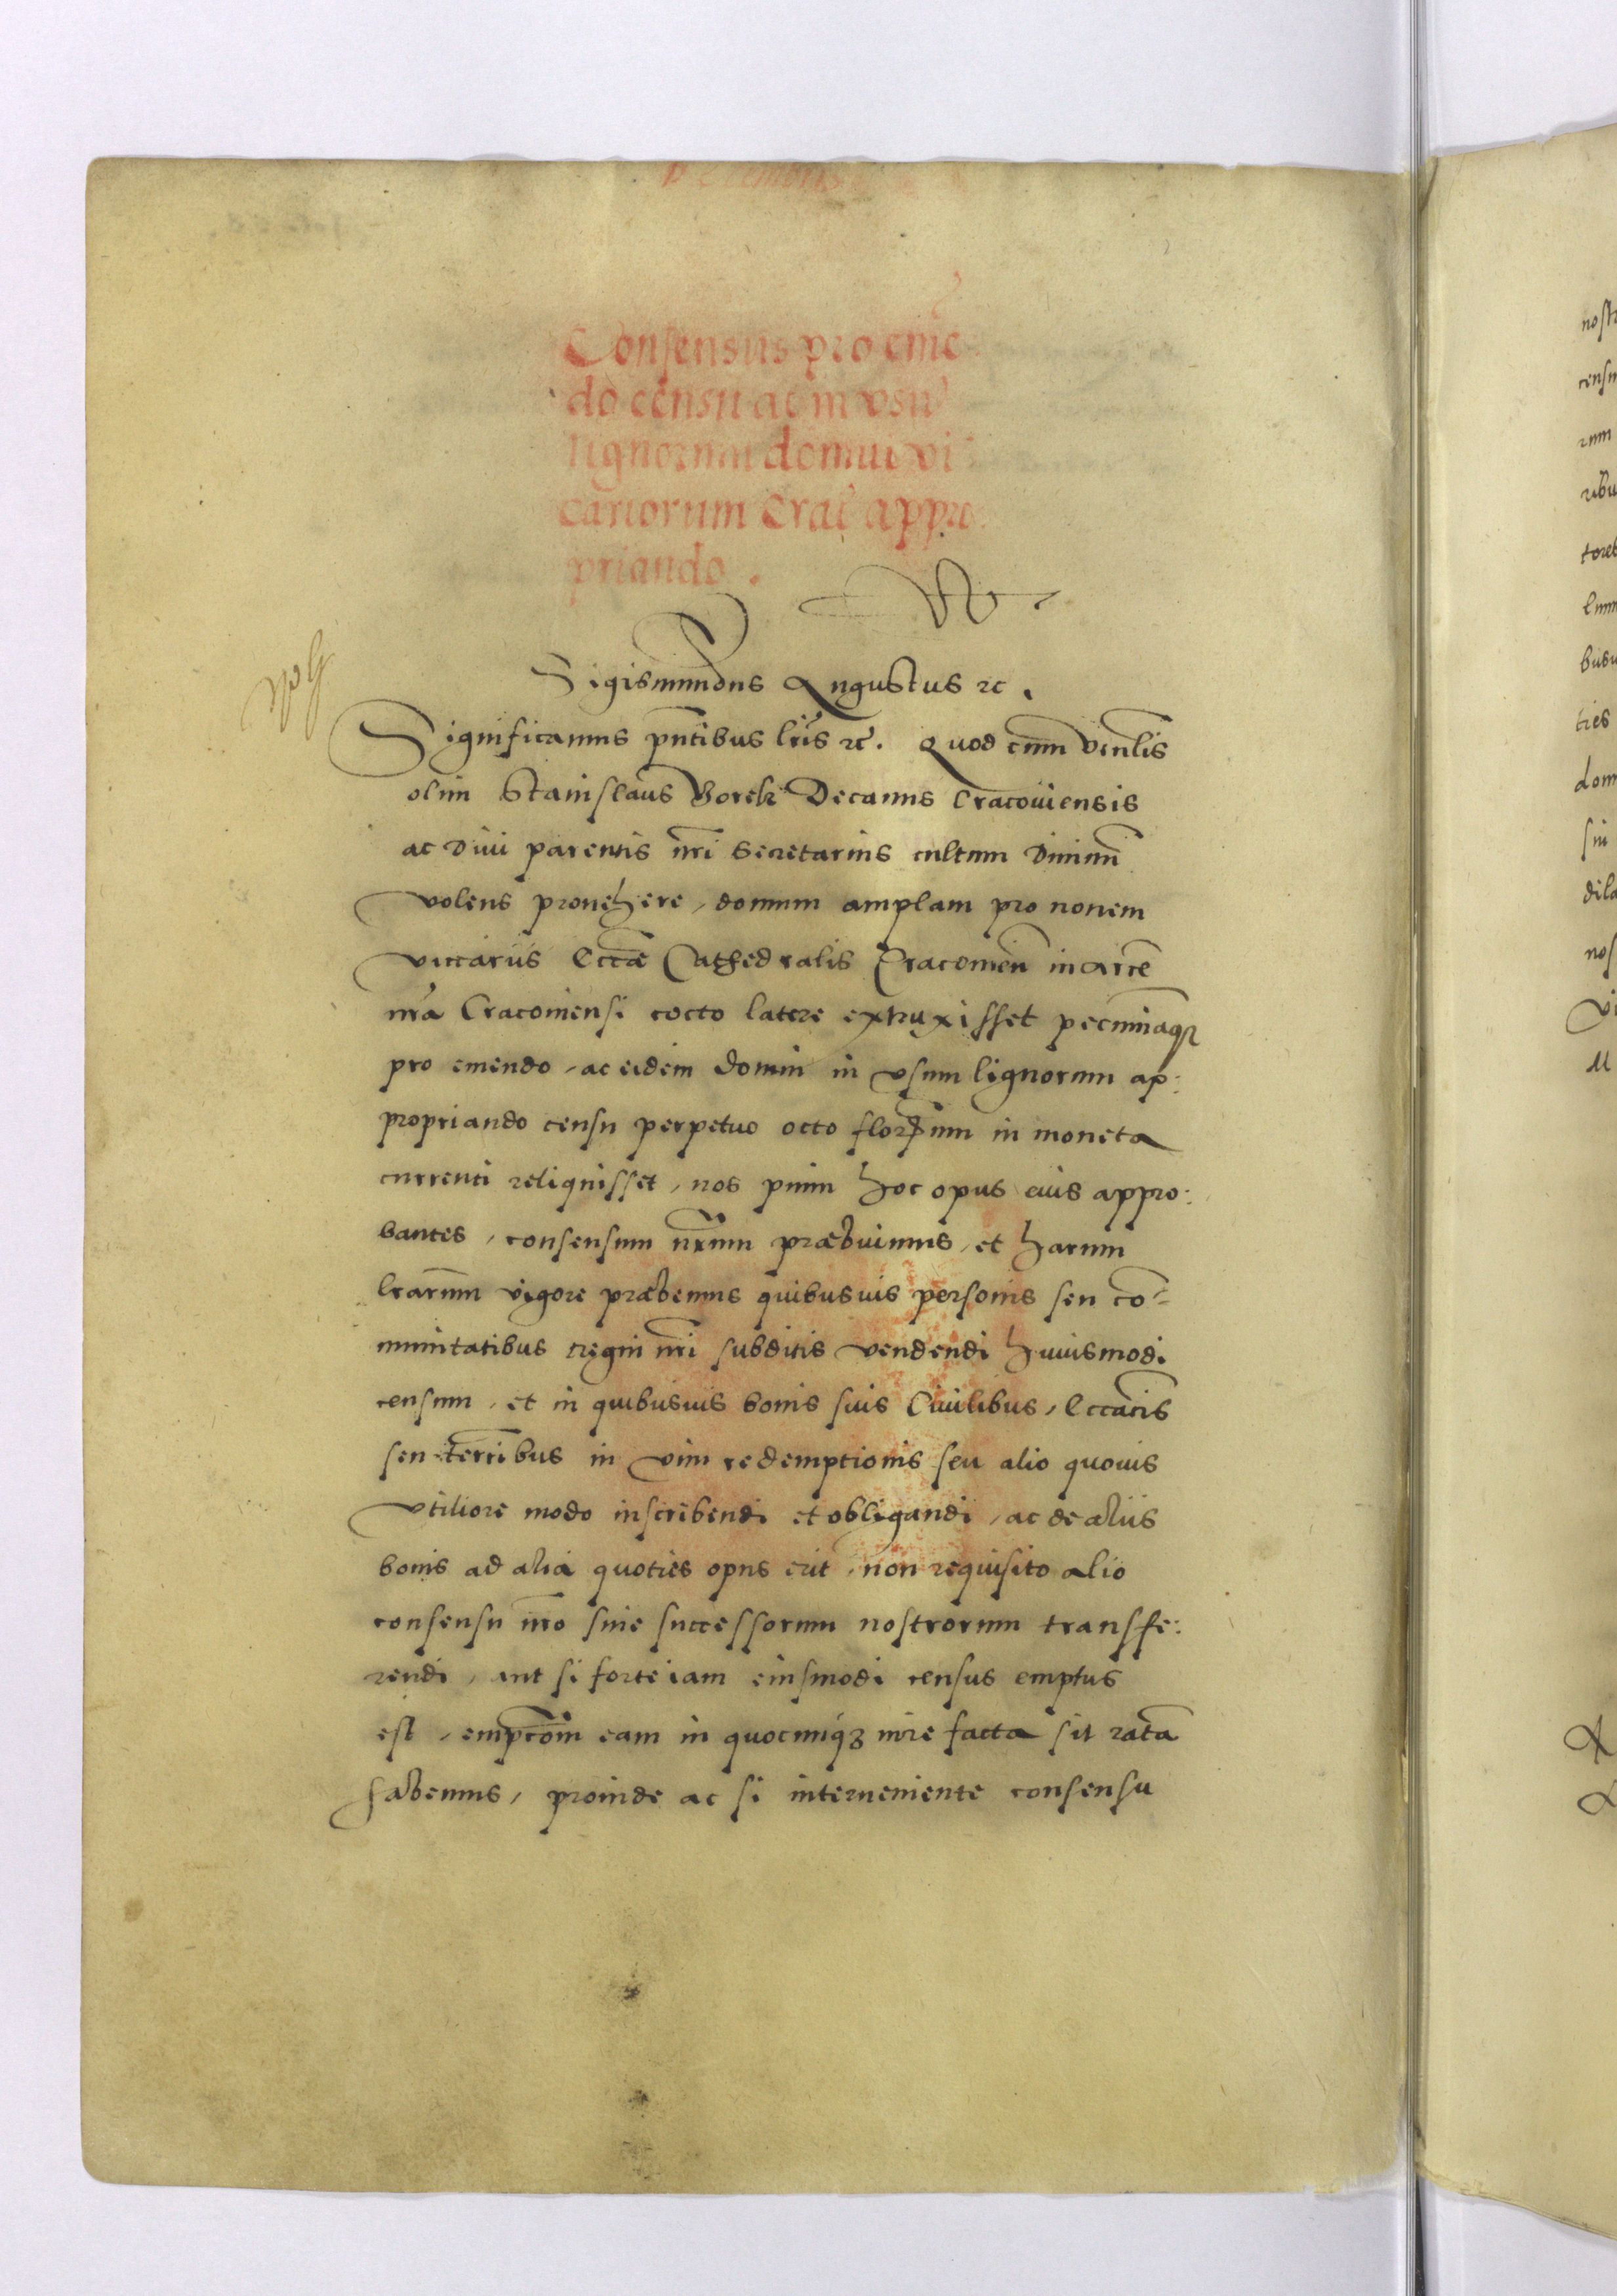 Decembris
Consensus pro eme
do censu ac in vsu
lignorum domui vi
cariorum Crac appro
priando.
Sigismundus Augustus rc.
Significamus pntibus lris rc. Quod cum venlis
olim Stanislaus Borek Decanus Cracouiensis
ac Diui parentis nri Secretarius cultum Diuinu
volens prouehere, domum amplam pro nouem
viccariis Eccae Cathedralis Cracouien in arce
nra Cracouiensi cocto latere extruxisset pecuniaq
pro emendo, ac eidem domui in vsum lignorum ap:
propriando censu perpetuo octo florenum in moneta
currenti reliquisset, nos pium hoc opus eius appro:
bantes, consensum nrum præbuimus, et harum
lrarum vigore præbemus quibusuis personis seu co=
munitatibus regni nri subditis vendendi huiusmodi
censum, et in quibusuis bonis suis Ciuilibus, Eccacis
seu terribus in vim redemptionis seu alio quouis
vtiliore modo inscribendi et obligandi, ac de aliis
bonis ad alia quoties opus erit, non requisito alio
consensu nro siue successorum nostrorum transffe:
rendi, aut si forte iam eiusmodi census emptus
est, emptom eam in quocunqz iure facta sit rata
habemus, proinde ac si interueniente consensu